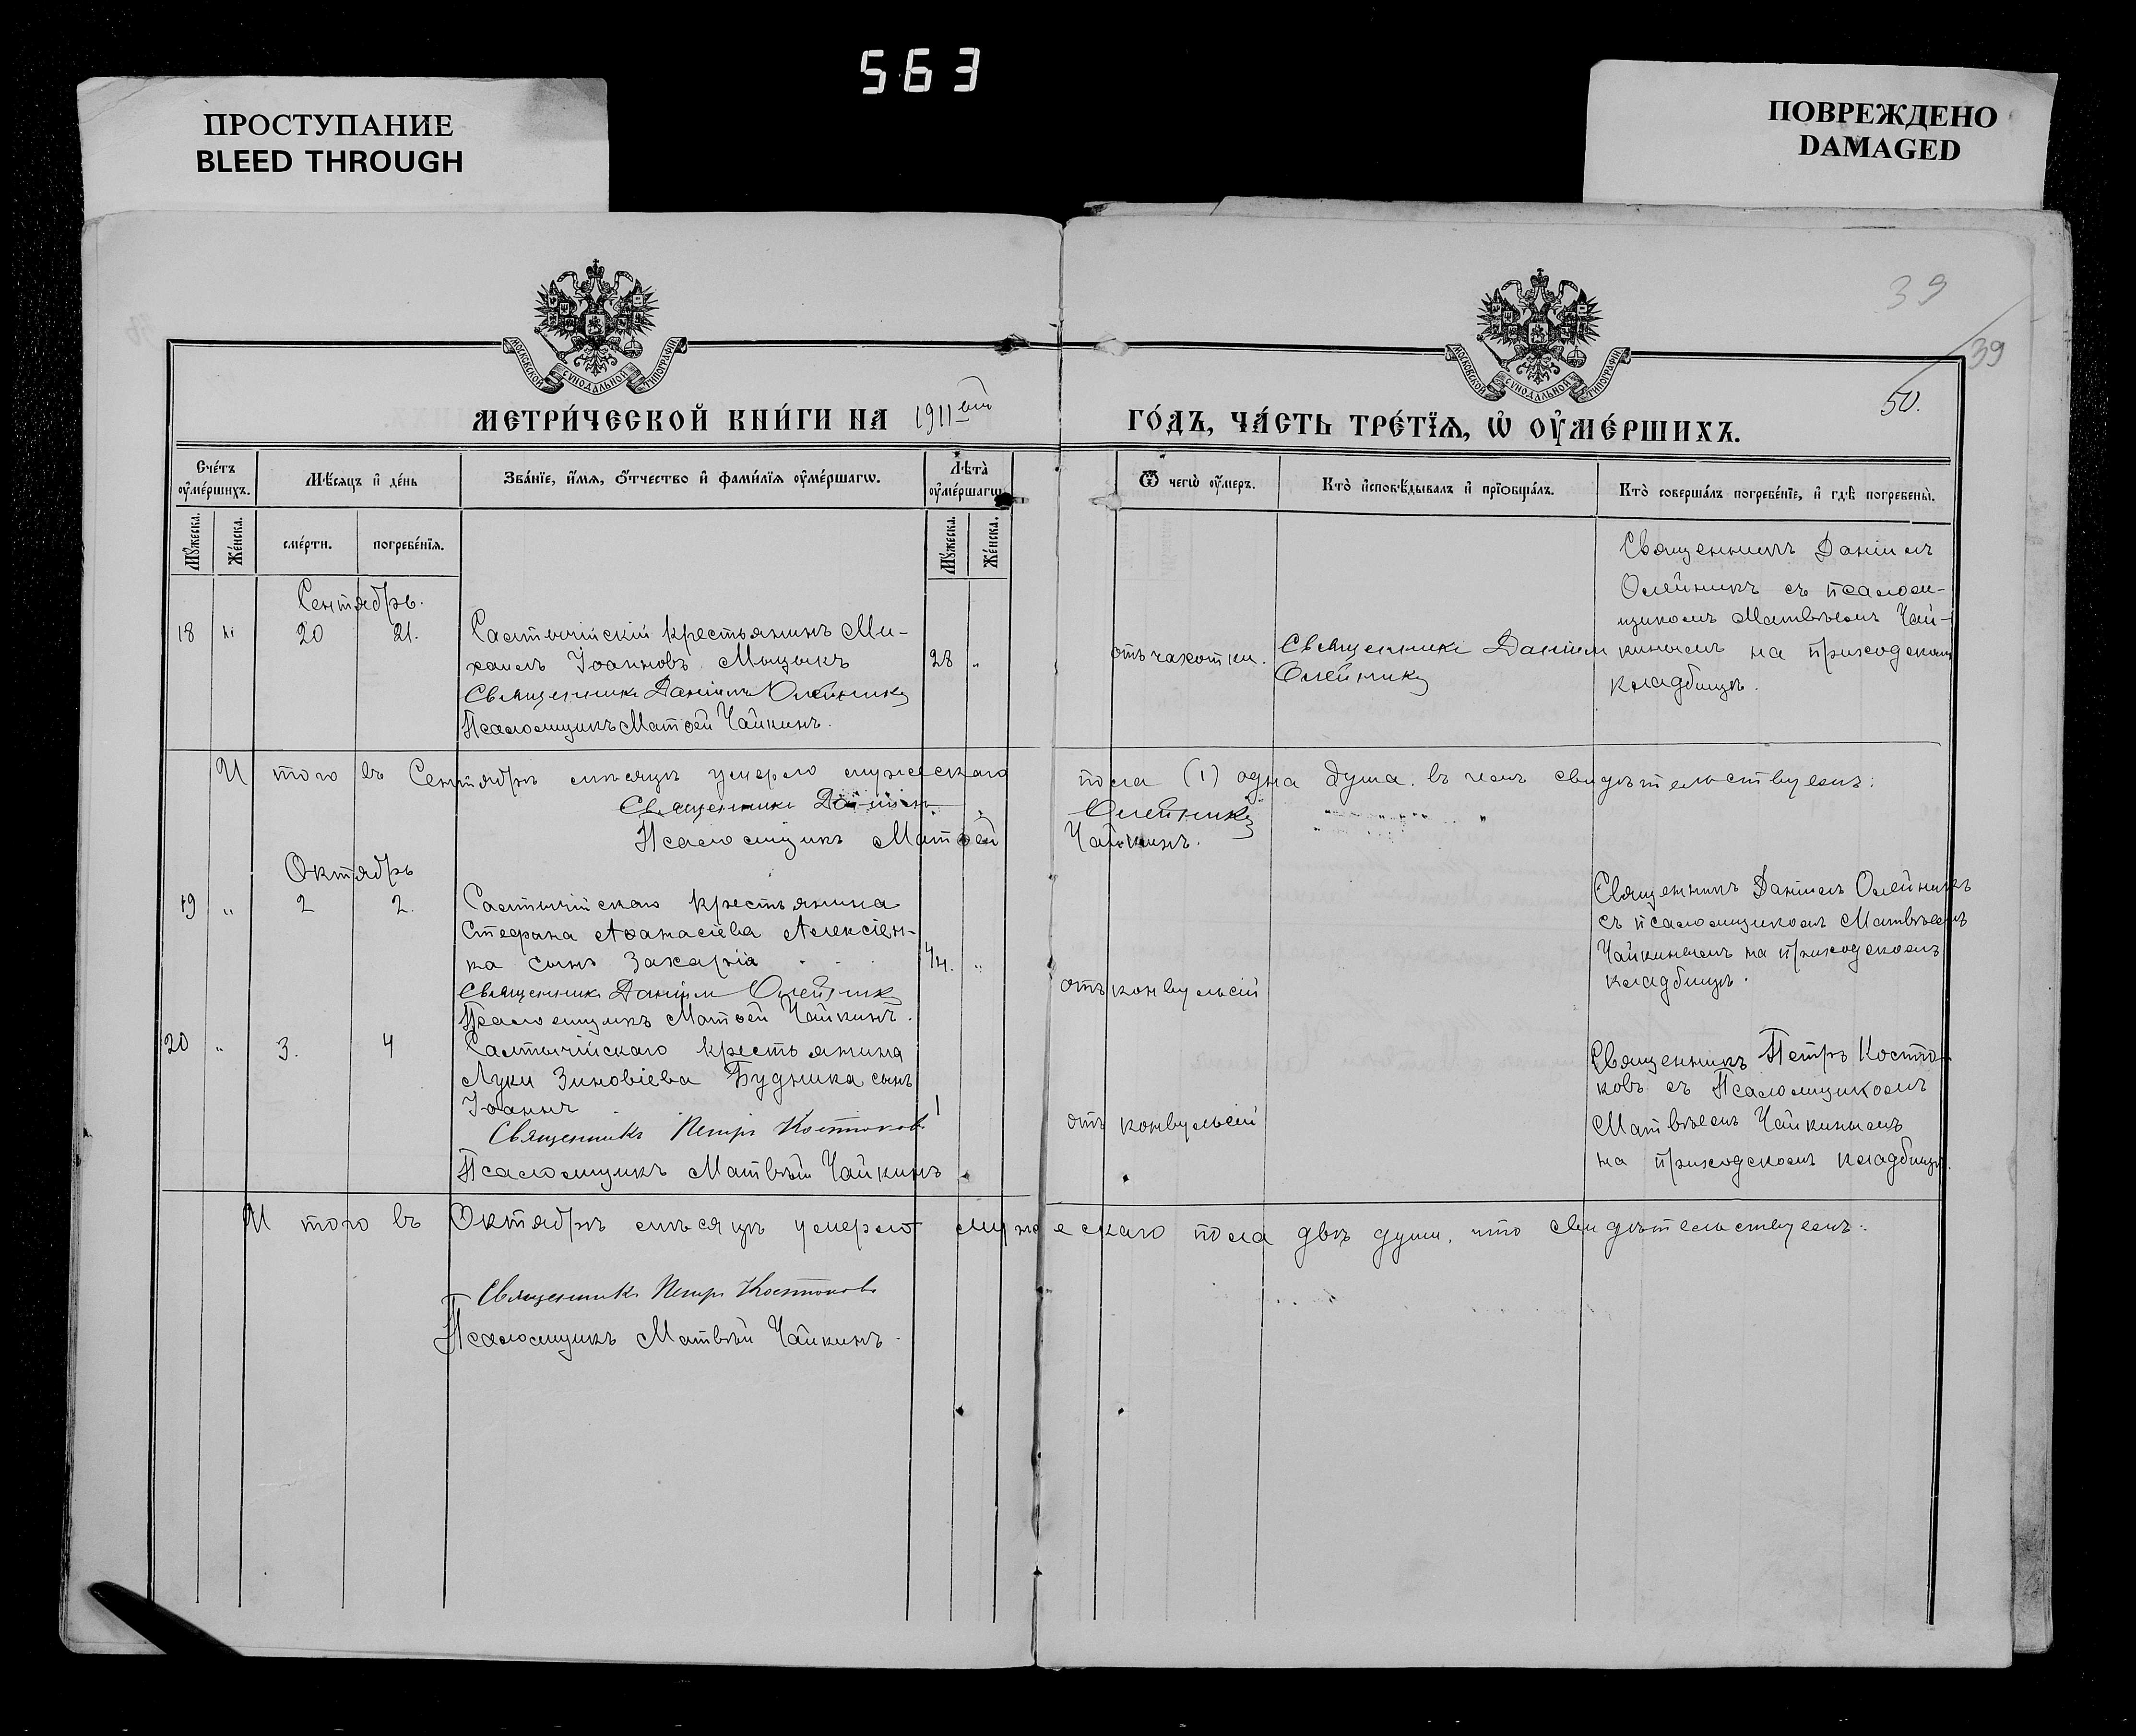 563
ПРОСТУПАНИЕ
BLEED THROUGH
ПОВРЕЖДЕНО
DAMAGED
39
39
50.
МОСКОВСКОЙ СѴНОДАЛЬНОЙ ТИПОГРАФІИ
МОСКОВСКОЙ СѴНОДАЛЬНОЙ ТИПОГРАФІИ
МЕТРИ́ЧЕСКОЙ КНИ́ГИ НА 1911 ГО́ДЪ, ЧА́СТЬ ТРЕ́ТІѦ, Ѡ҆ ОУ҆МЕ́РШИХЪ.
Сче́тъ оу҆ме́ршихъ.
Мѣ́сѧцъ и҆ де́нь
Зва́нїе, и҆́мѧ, ѻ҆́тчество и҆ фами́лїѧ оу҆ме́ршагѡ.
Лѣта̀ оу҆ме́ршагѡ.
Ѿ чегѡ̀ оу҆́меръ.
Кто̀ и҆сповѣ́дывалъ и҆ прїѡбща́лъ.
Кто̀ соверша́лъ погребе́нїе, и҆ гдѣ̀ погребены̀.
Мꙋ́жеска. Же́нска. сме́рти. погребе́нїѧ. Мꙋ́жеска. Же́нска.
Сентябрь.
18 20 21. Салтычійскій крестьянинъ Ми-
хаилъ Іоанновъ Мыцыкъ 28 „
Священникъ Даніилъ Олейникъ
Псаломщикъ Матѳей Чайкинъ.
отъ чахотки.
Священникъ Даніилъ
Олейникъ
Священникъ Даніилъ
Олейникъ съ псалом-
щикомъ Матвѣемъ Чай-
кинымъ на приходскомъ
кладбищѣ.
И того въ Сентябрѣ мѣсяцѣ умерло мужескаго пола (1) одна душа. въ чемъ свидѣтельствуемъ:
Священникъ Даніилъ Олейникъ
Псаломщикъ Матѳей Чайкинъ.
Октябрь
19 „ 2 2. Салтычійскаго крестьянина
Стефана Аѳанасіева Алексіен-
ка сынъ Захарія 4/н. „
Священникъ Даніилъ Олейникъ
Псаломщикъ Матѳей Чайкинъ.
отъ конвульсій
Священникъ Даніилъ Олейникъ
съ псаломщикомъ Матвѣемъ
Чайкинымъ на приходскомъ
кладбищѣ.
20 „ 3. 4 Салтычійскаго крестьянина
Луки Зиновіева Будника сынъ
Іоаннъ 1
Священникъ Петръ Костюковъ
Псаломщикъ Матвѣй Чайкинъ
отъ конвульсій
Священникъ Петръ Костю-
ковъ съ Псаломщикомъ
Матвѣемъ Чайкинымъ
на приходскомъ кладбищѣ.
И того въ Октябрѣ мѣсяцѣ умерло мужескаго пола двѣ души, что свидѣтельствуемъ:
Священникъ Петръ Костюковъ
Псаломщикъ Матвѣй Чайкинъ.